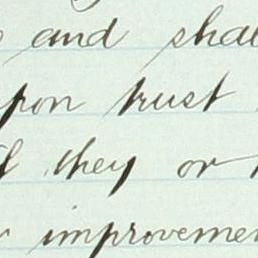 and shal
pon trust
they or
improvemen